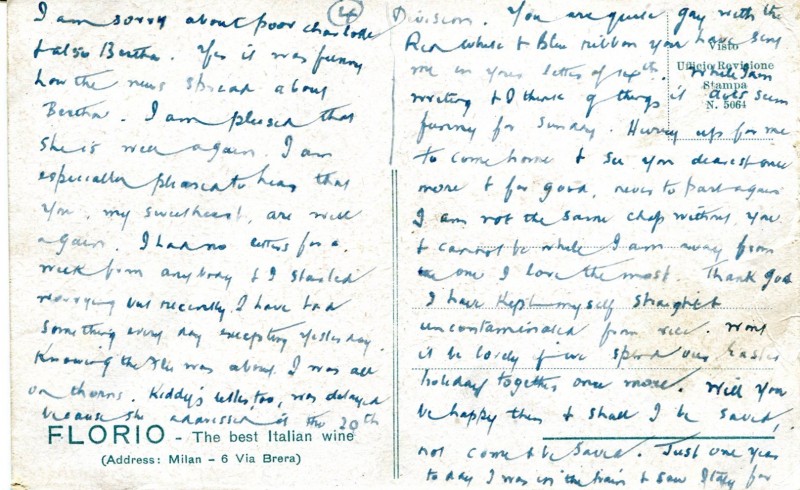 4
I am sorry about poor Charlotte
& also Bertha. Yes it was funny
how the news spread about
Bertha. I am pleased that
she is well again. I am
especially pleased to hear that
you, my sweetheart, are well
again. I had no letters for a
week from anybody & I started
worrying but recently I have had
something every day excepting yesterday.
Knowing the 'flu was about, I was all
on thorns. Kiddy's letter, too, was delayed
because she addressed it the 20th
FLORIO - The best Italian wine
(Address: Milan - 6 Via Brera)
Division. You are quite gay with the
Red White & Blue ribbon you have sent
me in your letter of
Visto
Ufficio Revisione
Stampa
N. 5064
While I am
writing & I think of things it does seem
funny for Sunday. Hurry up for me
to come home & see you dearest once
more & for good, never to part again
I am not the same chap without you
& cannot be while I am away from
the one I love the most. Thank God
I have kept myself straight &
uncontaminated from vice. Wont
it be lovely if we spend our Easter
holiday together once more. Will you
be happy then & shall I be saved,
not come & be saved. Just one year
to day I was in the train & saw Italy for